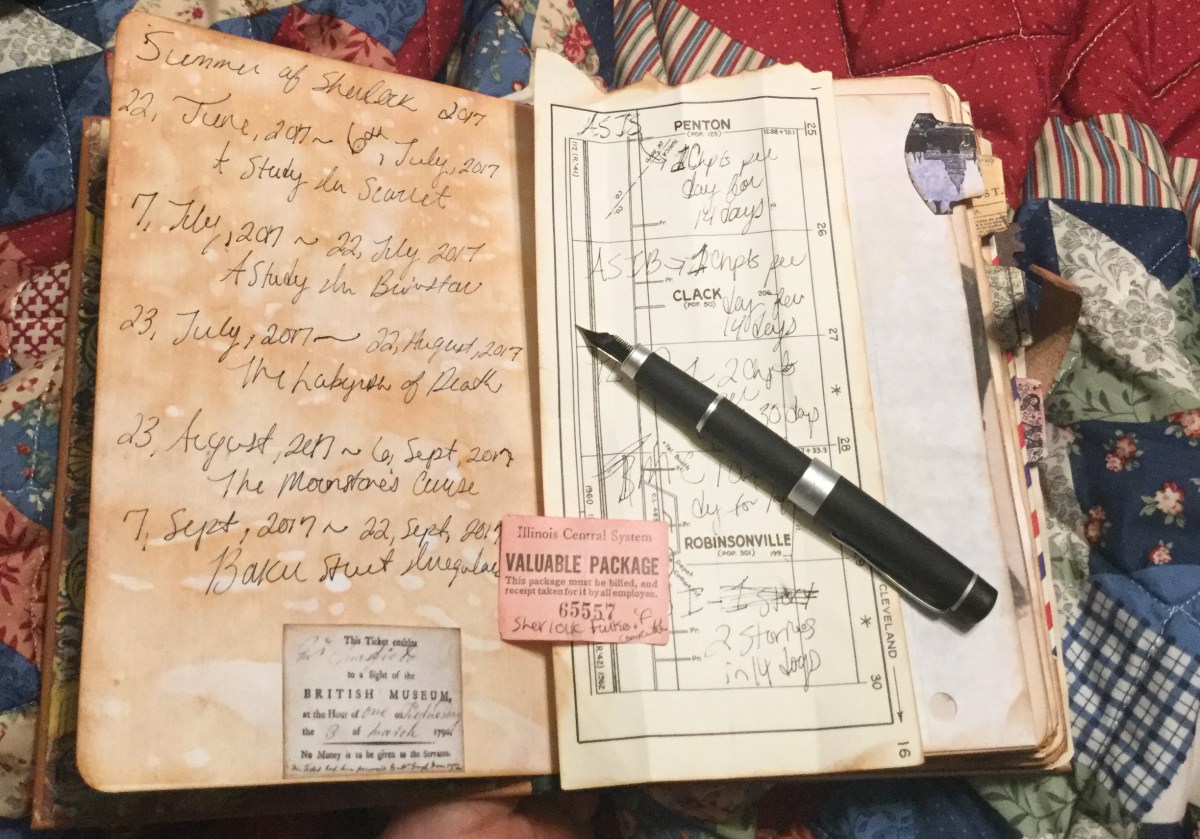 Summer of Sherlock 2017
22, June, 2017 ~ 6th, July, 2017
A Study In Scarlet
7, July, 2017 ~ 22, July, 2017
A Study In
23, July, 2017 ~ 22, August, 2017
The Labyrinth of Death
23, August, 2017 ~ 6, Sept, 2017
The Moonstone's Curse
7, Sept, 2017 ~ 22, Sept, 2017
Baker Street Irregulars
This Ticket entitles
to a Sight of the
BRITISH MUSEUM,
at the Hour of one on Wednesday
the 3 of March 1790
No Money is to be given to the Servants.
1
25
ASIS
PENTON
(POP. 125)
Chpts per
day for
14 days
26
ASIB → 1 Chpts per
CLACK
(POP. 50)
206
day for
14 days
27
2 Chpts
30 days
28
day for
ROBINSONVILLE
(POP. 301)
199
CLEVELAND
2 Stories
in 14 days
30
16
Illinois Central System
VALUABLE PACKAGE
This package must be billed, and
receipt taken for it by all employes.
65557
Sherlock